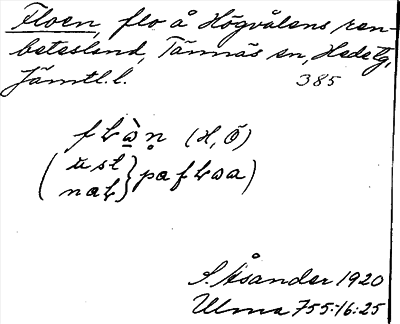 Floen, flo å Högvålens ren-
betesland, Tännäs sn, Hede tg,
Jämtl. l. 385
flɷ̀n (H, Ö)
(ust
nɷl} pa flɷa)
S. Åsander 1920
Ulma 755:16:25